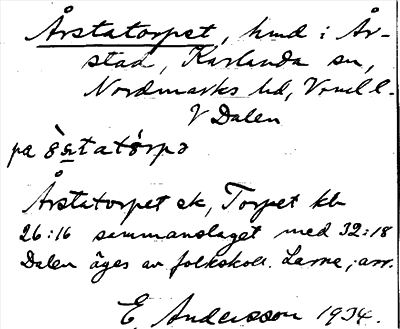 Årstatorpet, hmd i År-
stad, Karlanda sn,
Nordmarks hd, Vrml l.
V Dalen
pa
Årstatorpet ek, Torpet kb
26:16 sammanslaget med 32:18
Dalen äges av folkskoll. Larne, arr.
E. Andersson 1934.